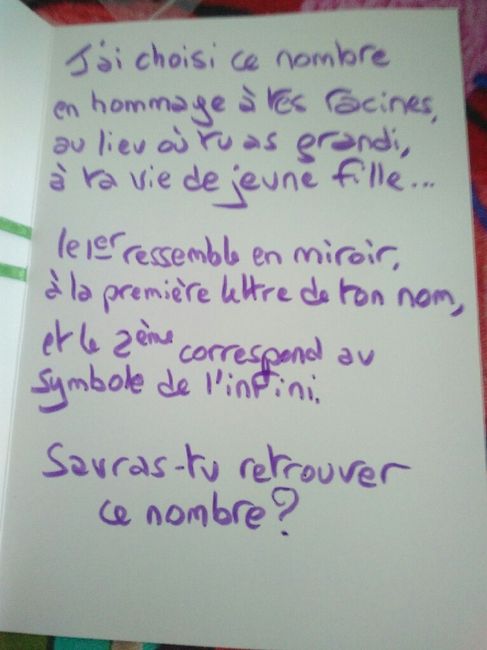 J'ai choisi ce nombre
en hommage à tes racines,
au lieu où tu as grandi,
à ta vie de jeune fille...
le 1er ressemble en miroir,
à la première lettre de ton nom,
et le 2ème correspond au
symbole de l'infini.
Sauras-tu retrouver
ce nombre?